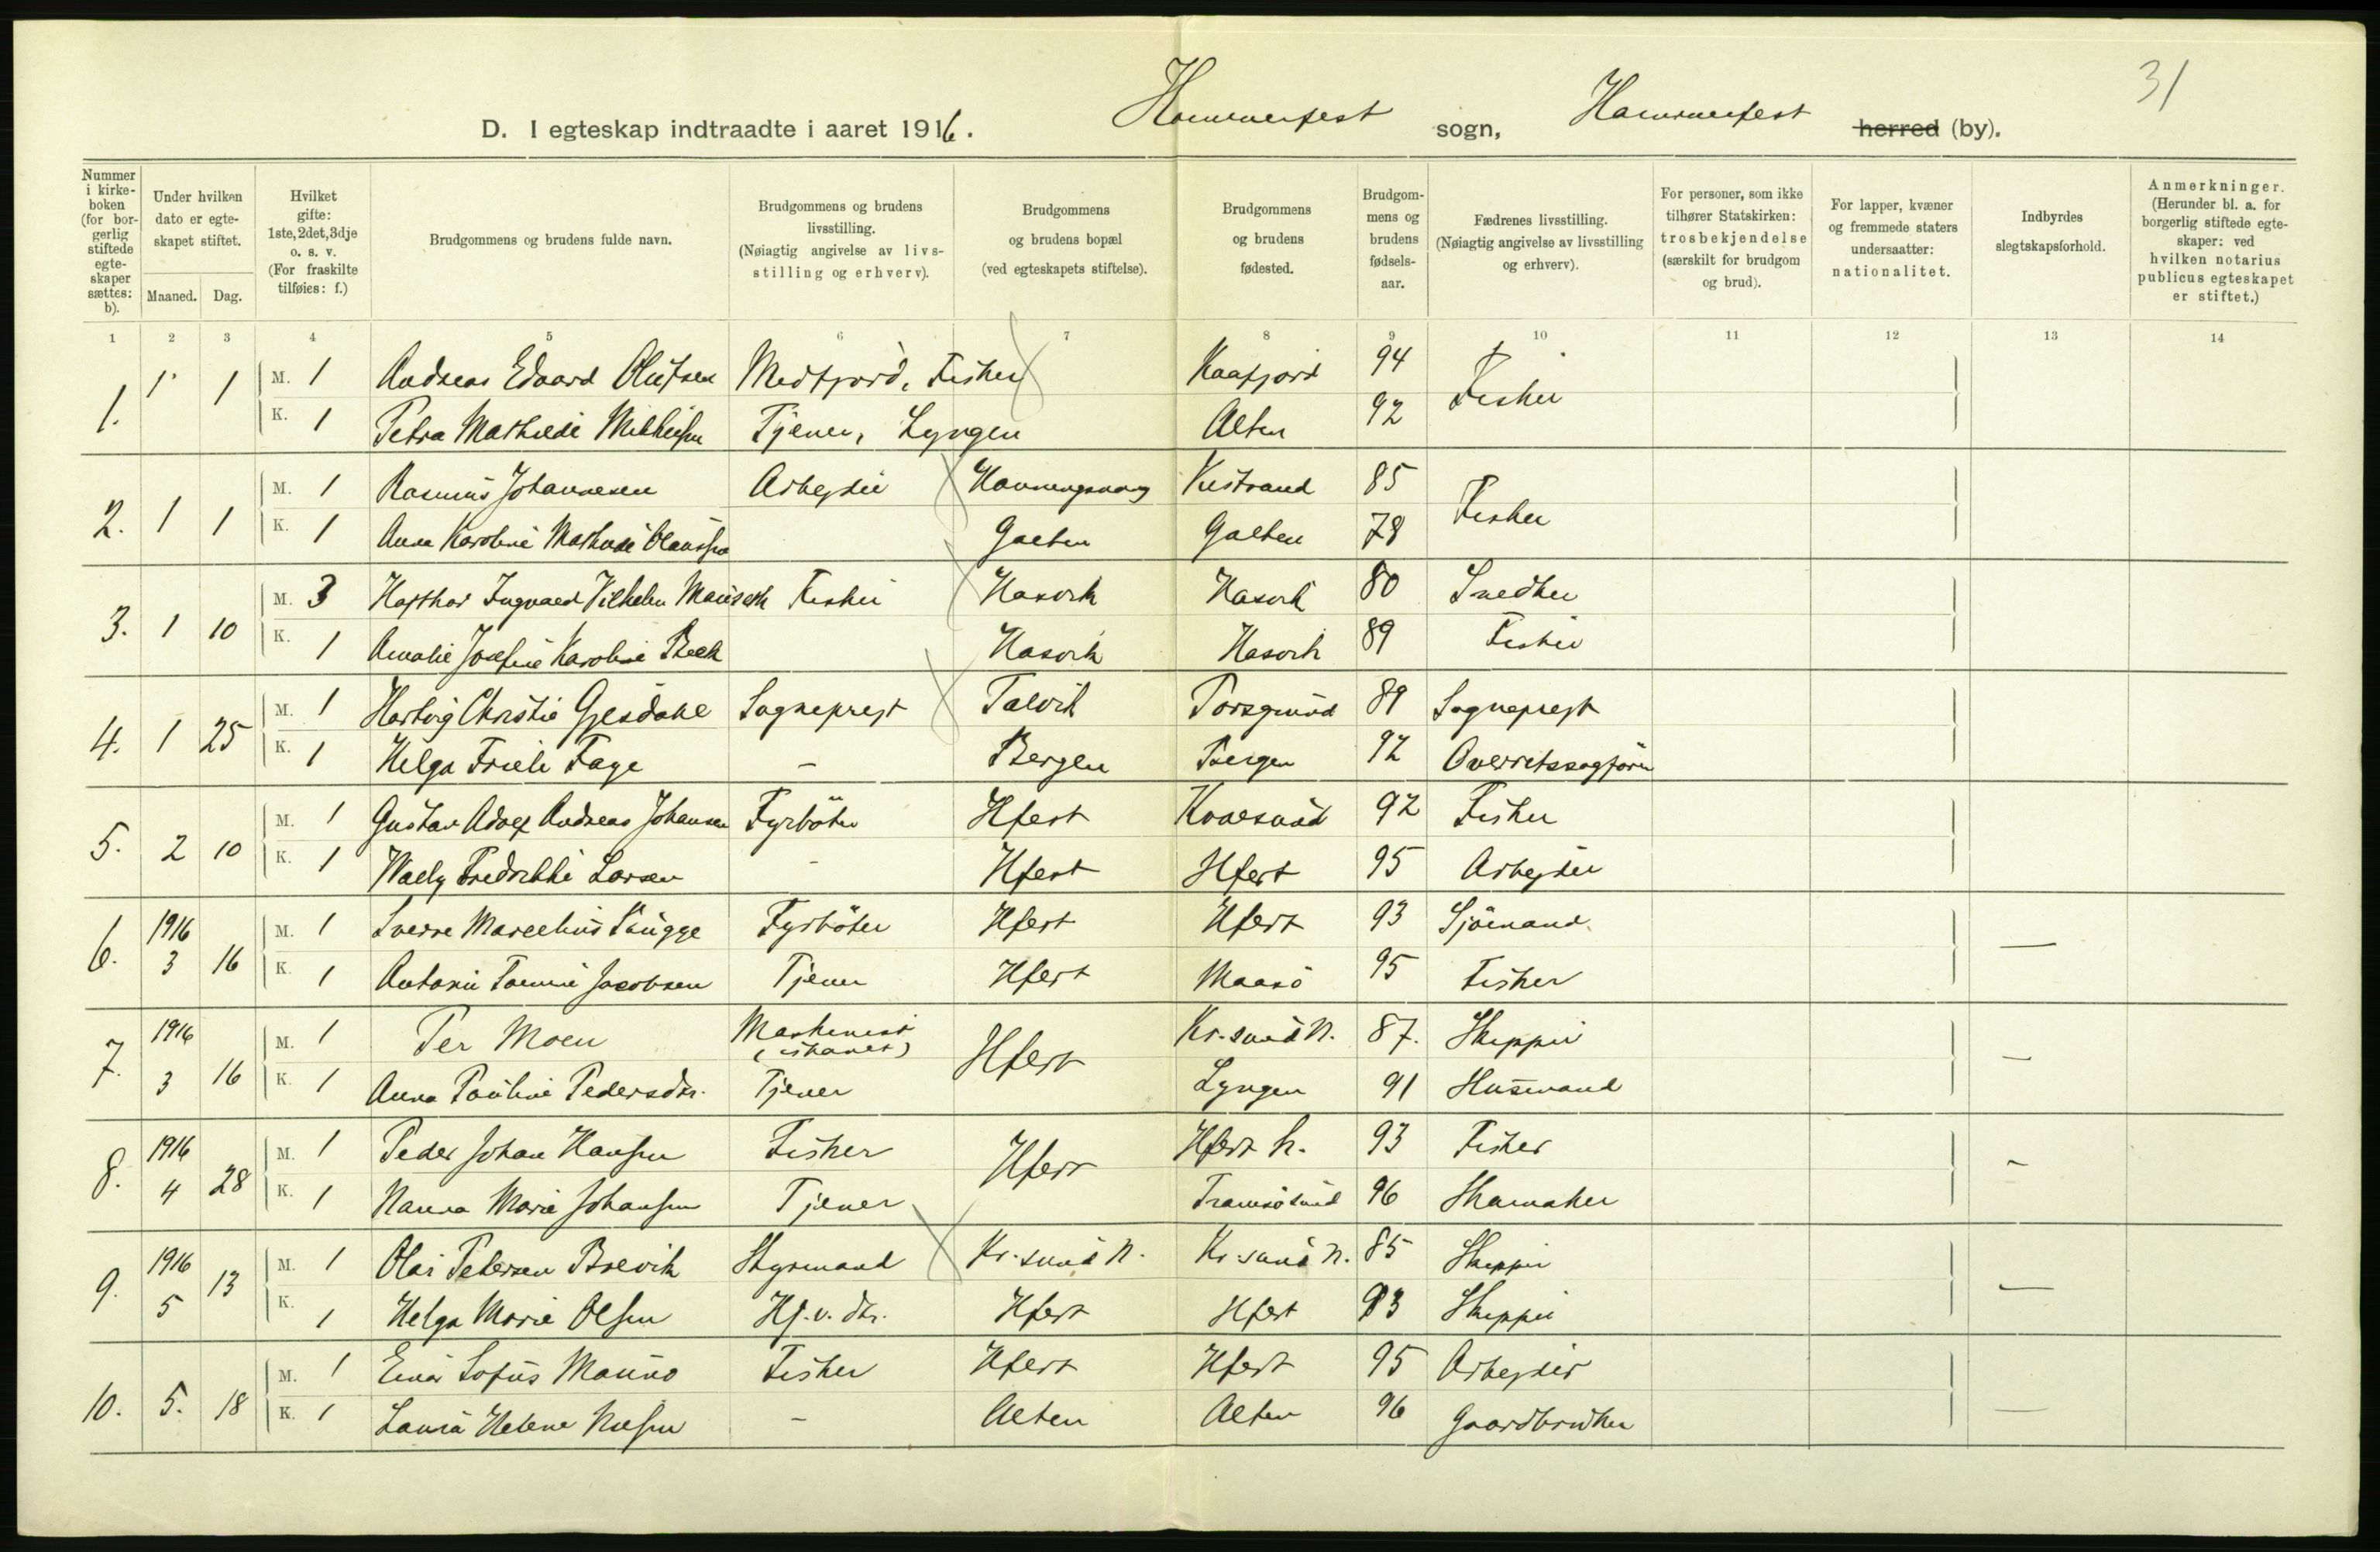 31
D. I egteskap indtraadte i aaret 1916. Hammerfest sogn, Hammerfest herred (by).
Nummer i kirke-boken (for bor-gerlig stiftede egte-skaper sættes: b).
Under hvilken dato er egte-skapet stiftet.
Maaned. Dag.
Hvilket gifte: 1ste, 2det, 3dje o. s. v. (For fraskilte tilføies: f.)
Brudgommens og brudens fulde navn.
Brudgommens og brudens livsstilling. (Nøiagtig angivelse av livs-stilling og erhverv).
Brudgommens og brudens bopæl (ved egteskapets stiftelse).
Brudgommens og brudens fødested.
Brudgom-mens og brudens fødsels-aar.
Fædrenes livsstilling. (Nøiagtig angivelse av livsstilling og erhverv).
For personer, som ikke tilhører Statskirken: trosbekjendelse (særskilt for brudgom og brud).
For lapper, kvæner og fremmede staters undersaatter: nationalitet.
Indbyrdes slegtskapsforhold.
Anmerkninger. (Herunder bl. a. for borgerlig stiftede egte-skaper: ved hvilken notarius publicus egteskapet er stiftet.)
1 2 3 4 5 6 7 8 9 10 11 12 13 14
1. 1 1 M. 1 Andreas Edvard Olufsen Medfjord, Fisker Kaafjord 94 Fisker
K. 1 Petra Mathilde Mikkelsen Tjener, Lyngen Alten 92
2. 1 1 M. 1 Rasmus Johannesen Arbejder Honningsvaag Kistrand 85 Fisker
K. 1 Anna Karoline Mathilde Olaussen Galten Galten 78
3. 1 10 M. 3 Ingvald Vilhelm Fisker Hasvik Hasvik 80 Snedker
K. 1 Amalie Josefine Karoline Beck Hasvik Hasvik 89 Fisker
4. 1 25 M. 1 Hartvig Christie Gjesdahl Sogneprest Talvik Porsgrund 89 Sogneprest
K. 1 Helga Friele Faye – Bergen Bergen 92 Overretssagfører
5. 2 10 M. 1 Gustav Adolf Andreas Johansen Fyrbøter Hfest Kvalsund 92 Fisker
K. 1 Wally Fredrikke Larsen – Hfest Hfest 95 Arbejder
6. 1916 3 16 M. 1 Sverre Marcelius Hfest Fyrbøter Hfest 93 Sjömand —
K. 1 Antonie Jacobsen Tjener Hfest Maasö 95 Fisker
7. 1916 3 16 M. 1 Per Moen Maskinist Hfest Kr.sund N. 87. Skipper —
K. 1 Anna Pauline Pedersdtr. Tjener Lyngen 91 Husmand
8. 1916 4 28 M. 1 Peder Johan Hansen Fisker Hfest Hfest h. 93 Fisker –
K. 1 Nanna Marie Johansen Tjener Tromsösund 96 Skomaker
9. 1916 5 13 M. 1 Olai Petersen Brevik Styrmand Kr.sund N. Kr.sund N. 85 Skipper —
K. 1 Helga Marie Olsen Hj.v. dtr. Hfest Hfest 93 Skipper
10. 5. 18 M. 1 Einar Sofus Mauno Fisker Hfest Hfest 95 Arbejder
K. 1 Laura Helene Nilsen – Alten Alten 96 Gaardbruker —